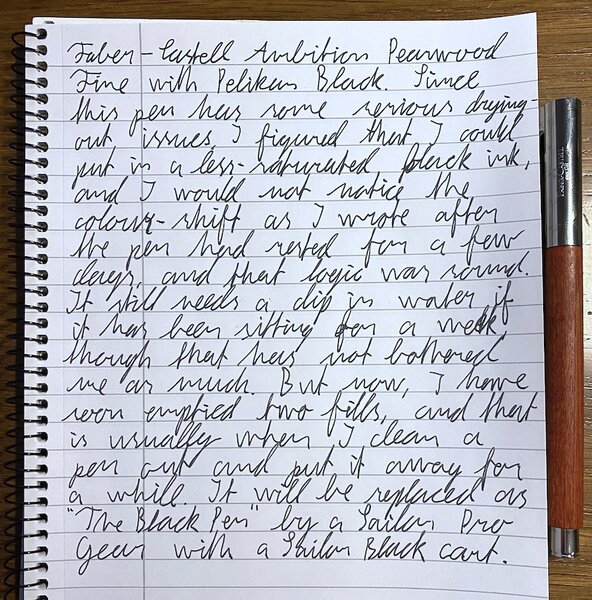 Faber-Castell Ambition Pearwood
Fine with Pelikan Black. Since
this pen has some serious drying-
out issues, I figured that I could
put in a less-saturated, black ink,
and I would not notice the
colour-shift as I wrote after
the pen had rested for a few
days, and that logic was sound.
It still needs a dip in water if
it has been sitting for a week,
though that has not bothered
me as much. But now, I have
emptied two fills, and that
is usually when I clean a
pen out and put it away for
a while. It will be replaced as
"The Black Pen" by a Sailor Pro
Gear with a Sailor Black cart.